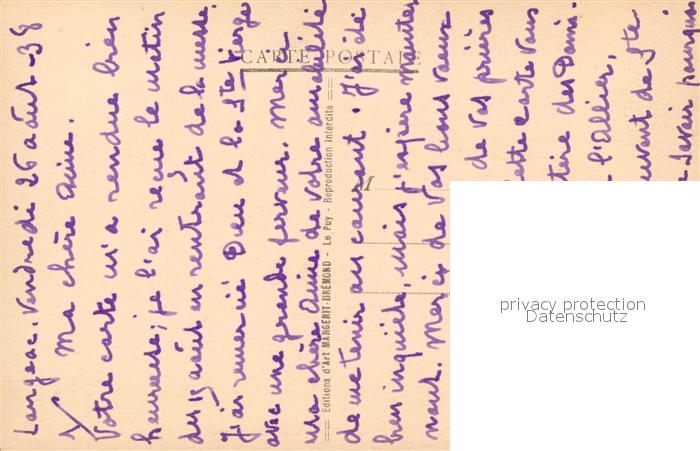 Langeac. Vendredi 26 août - 38
Ma chère Amie.
Votre carte m'a rendue bien
heureuse; je l'ai reçue le matin
du 15 août en rentrant de la messe.
J'ai remercié Dieu et la Ste Vierge
avec une grande ferveur. Merci
ma chère Amie de votre amabilité
de me tenir au courant. J'ai été
bien inquiète, mais j'espère
nant. Merci de vos bons vœux
de vos prières
cette carte vous
des Domi-
l'Allier,
de Ste
savais pourquoi
CARTE POSTALE
M
Editions d'Art MARGERIT-BRÉMOND - Le Puy - Reproduction interdite
privacy protection
Datenschutz